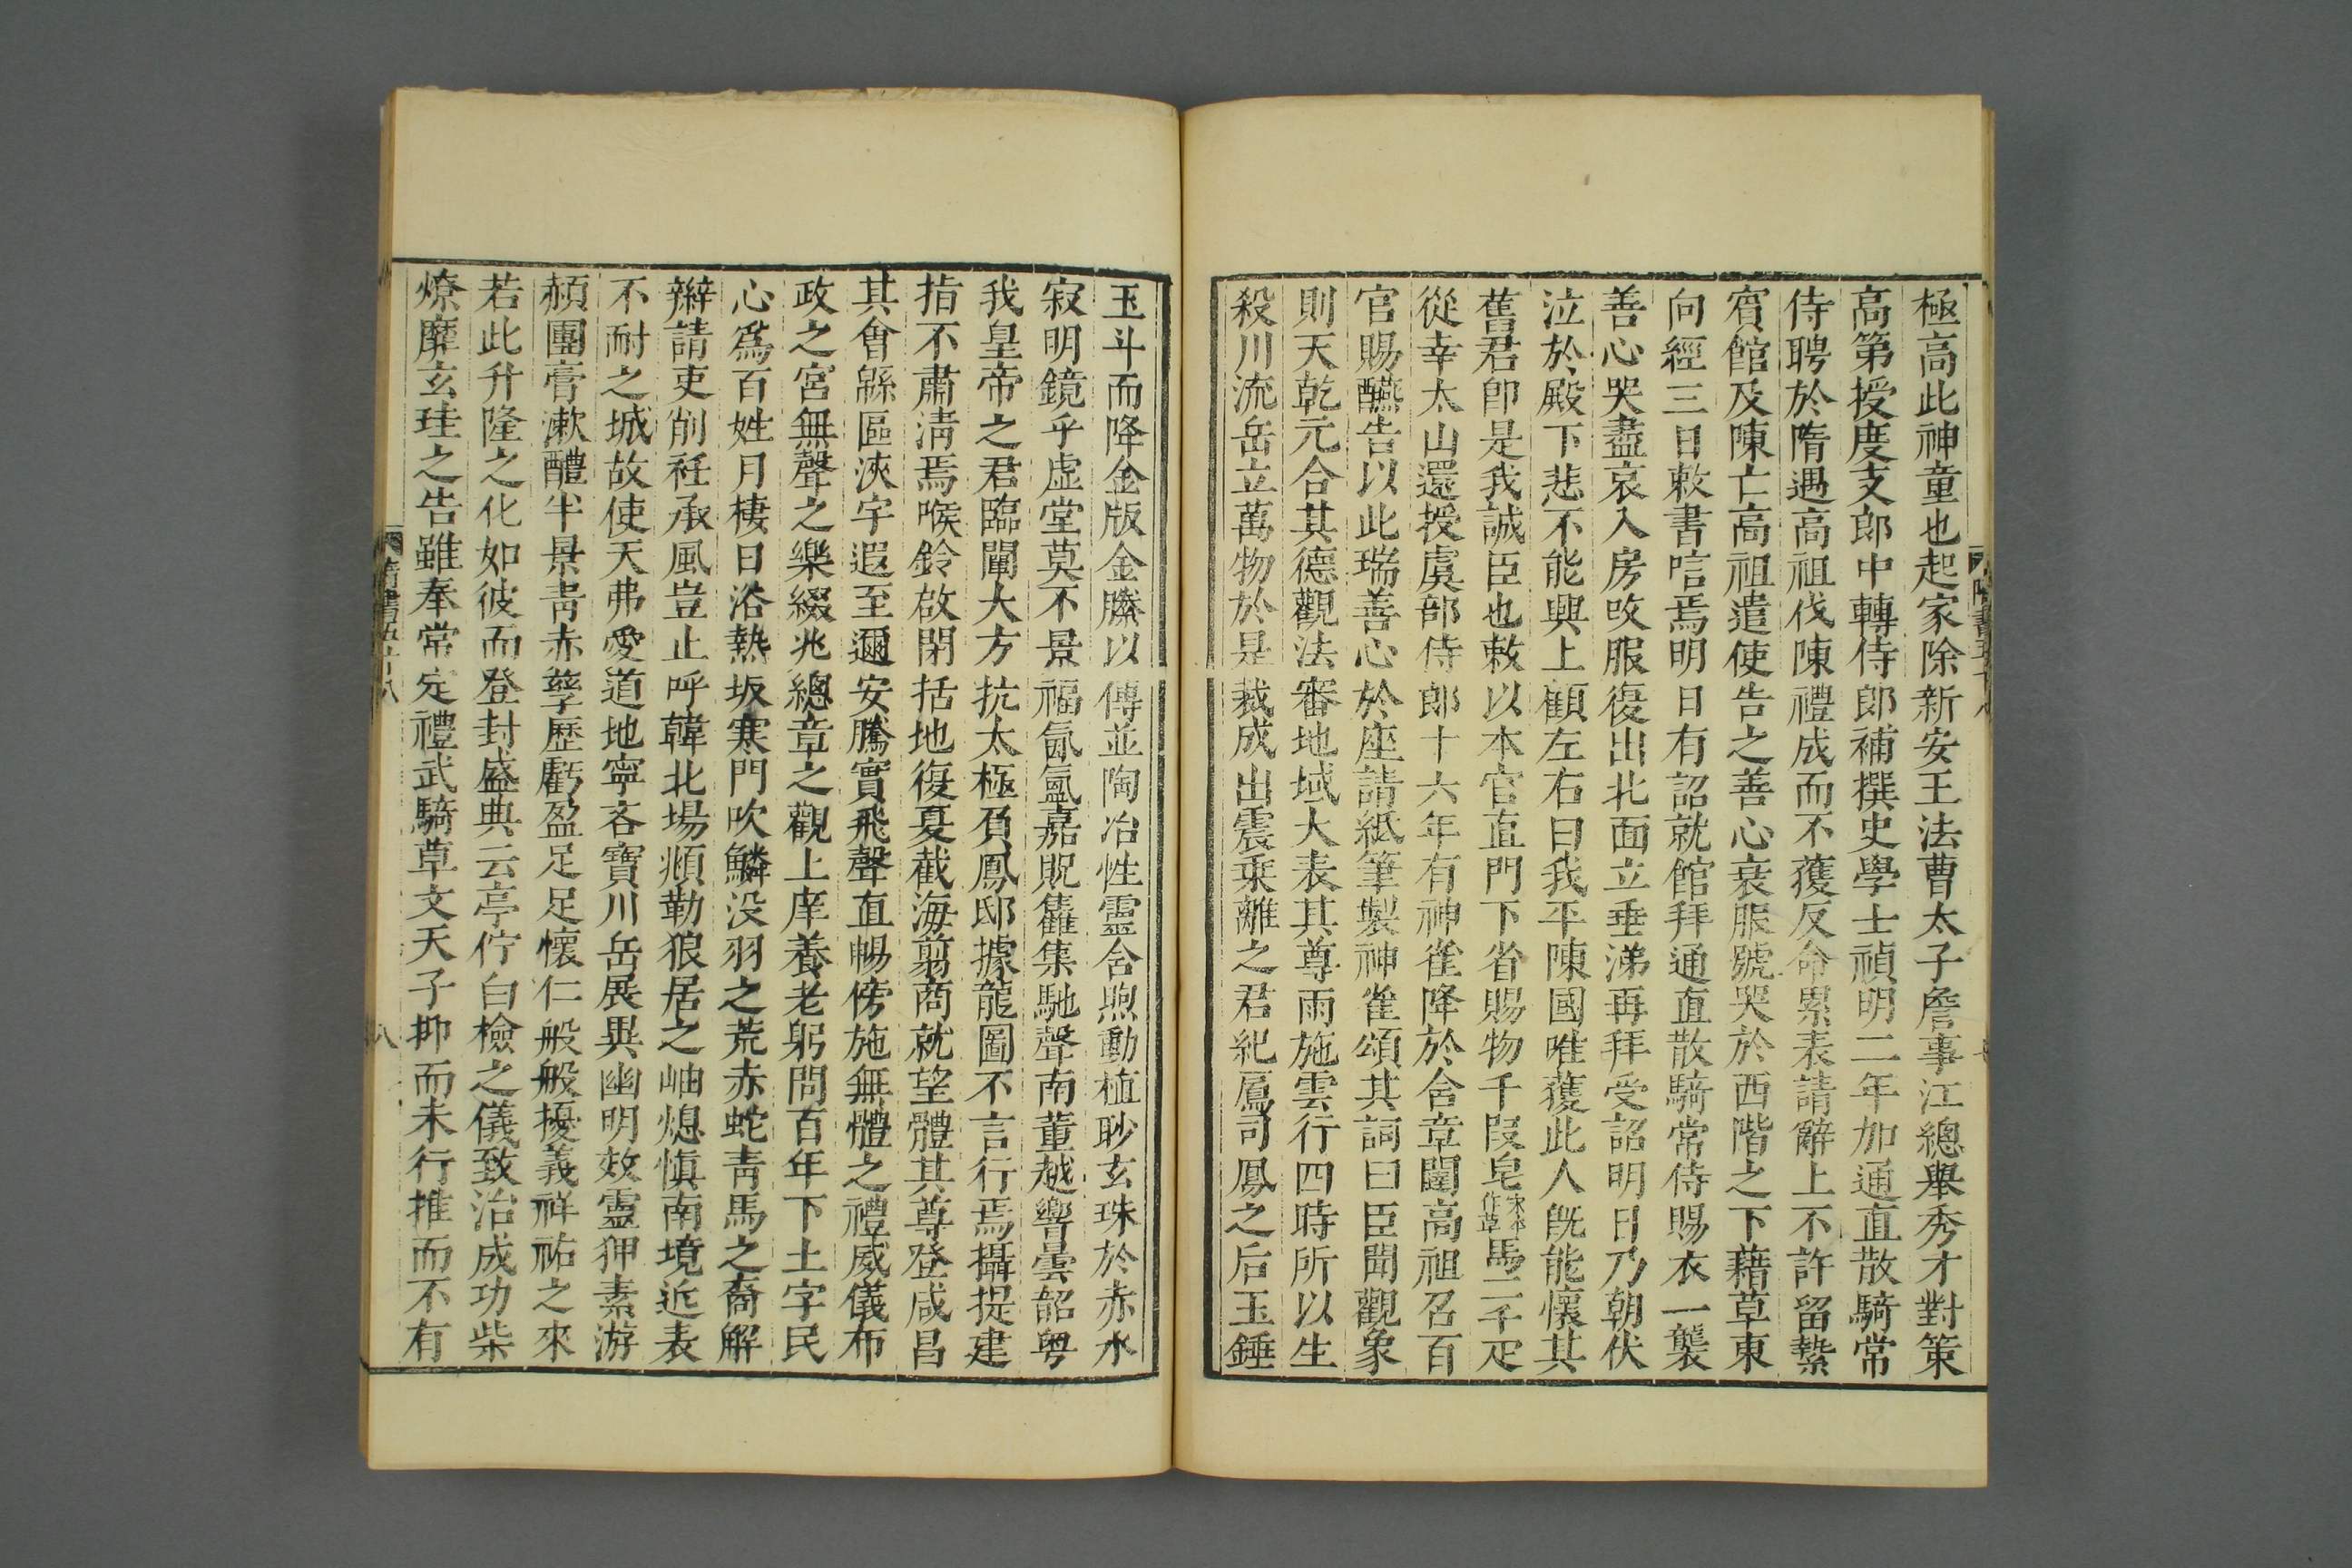 極高此神童也起家除新安王法曹太子詹事江總舉秀才對策
高第授度支郎中轉侍郎補撰史學士禎明二年加通直散騎常
侍聘於隋遇高祖伐陳禮成而不獲反命累表請辭上不許留縶
賓館及陳亡高祖遣使告之善心衰服號哭於西階之下藉草東
向經三日敕書唁焉明日有詔就館拜通直散騎常侍賜衣一襲
善心哭盡哀入房改服復出北面立垂涕再拜受詔明日乃朝伏
泣於殿下悲不能興上顧左右曰我平陳國唯獲此人旣能懷其
舊君卽是我誠臣也敕以本官直門下省賜物千叚皂宋本作草馬二千疋
從幸太山還授虞部侍郎十六年有神雀降於含章闥高祖召百
官賜醼告以此瑞善心於座請紙筆製神雀頌其詞曰臣聞觀象
則天乾元合其德觀法審地域大表其尊雨施雲行四時所以生
殺川流岳立萬物於是裁成出震乘離之君紀鳳司鳳之后玉錘
玉斗而降金版金縢以傳並陶冶性靈含煦動植眇玄珠於赤水
寂明鏡乎虛堂莫不景福氤氳嘉貺雜集馳聲南董越響雲韶粤
我皇帝之君臨闡大方抗太極負鳳邸據龍圖不言行焉攝提建
指不肅清焉喉鈴啟閉括地復夏截海翦商就望體其尊登咸昌
其會緜區浹宇遐至邇安騰實飛聲直暢傍施無體之禮威儀布
政之宮無聲之樂綴兆總章之觀上庠養老躬問百年下土字民
心爲百姓月棲日浴熱坂寒門吹鱗没羽之荒赤蛇青馬之裔解
辮請吏削衽承風豈止呼韓北場頫勒狼居之岫熄愼南境近表
不耐之城故使天弗愛道地寧吝寶川岳展異幽明效靈狎素游
赬團膏漱醴半景青赤孳歷虧盈足足懷仁般般擾義祥祐之來
若此升隆之化如彼而登封盛典云亭佇白檢之儀致治成功柴
燎靡玄珪之告雖奉常定禮武騎草文天子抑而未行推而不有
隋書五十八
八